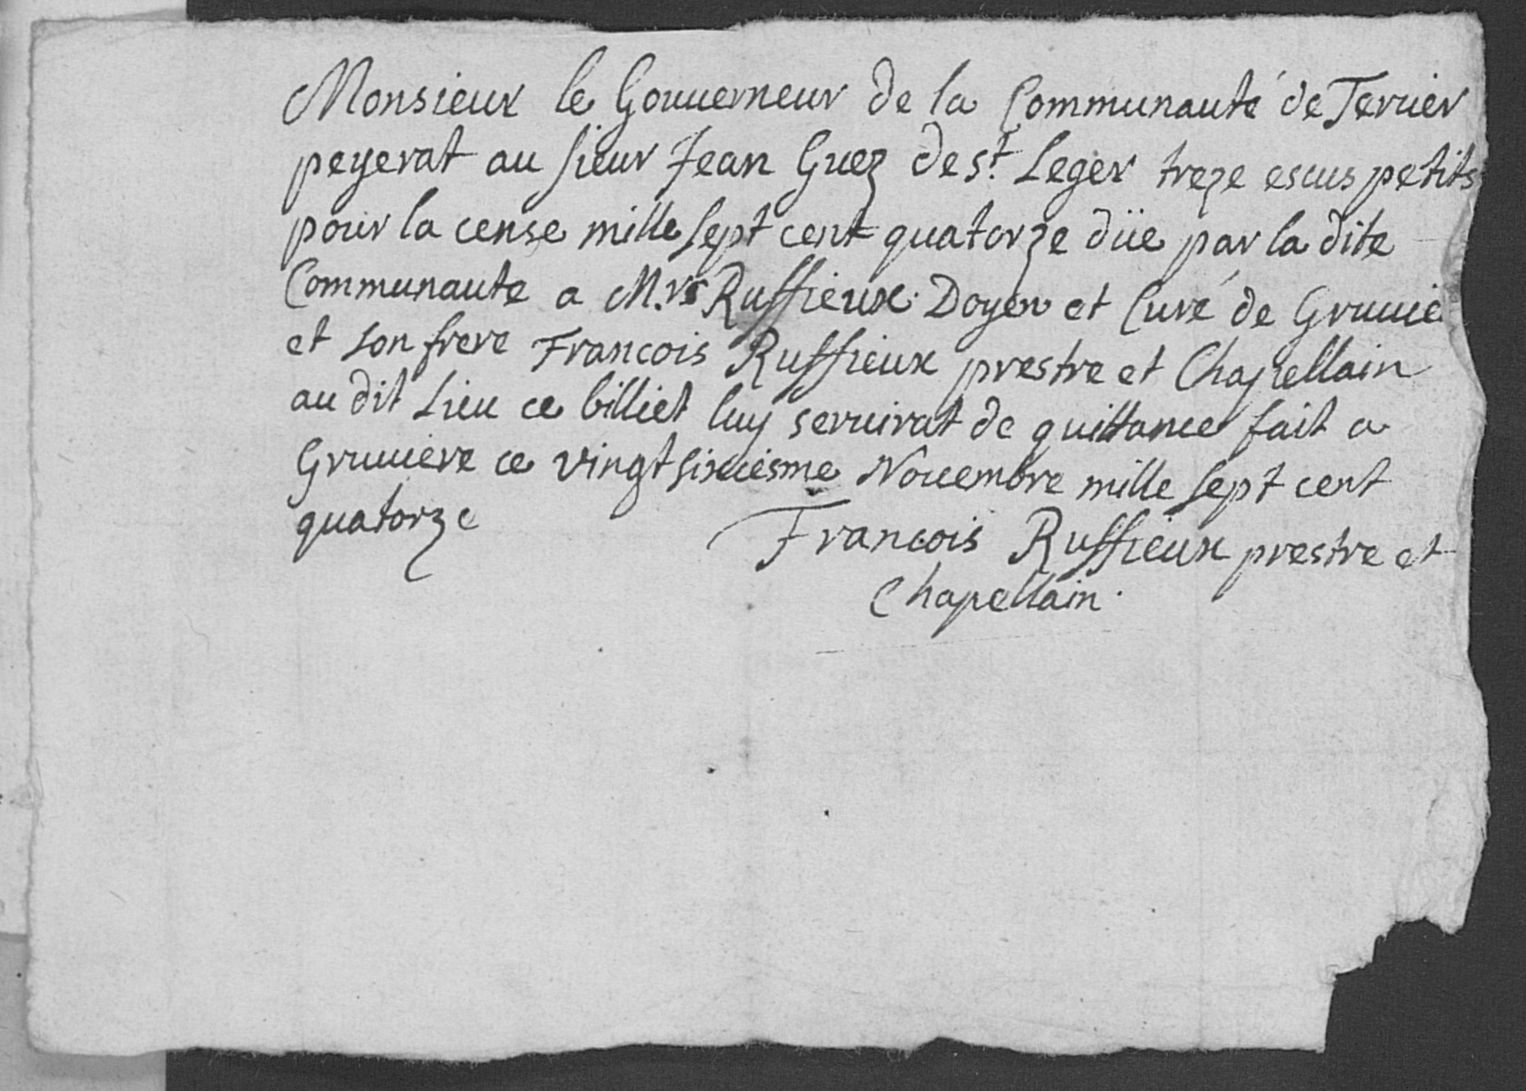 Monsieur le Gouuerneur de la Communauté de Teruer
peyerat au sieur Jean Guez de st. Leger treze escus petits
pour la cense mille sept cent quatorze düe par la dite
Communaute a M.rs Ruffieux Doyen et Curé de Gruuie
et son frere Francois Ruffieux prestre et Chapellain
au dit Lieu ce billiet luy seruirat de quittance fait a
Gruuiere ce vingtsixiesme Nouembre mille sept cent
quatorze
Francois Ruffieux prestre et
Chapellain.